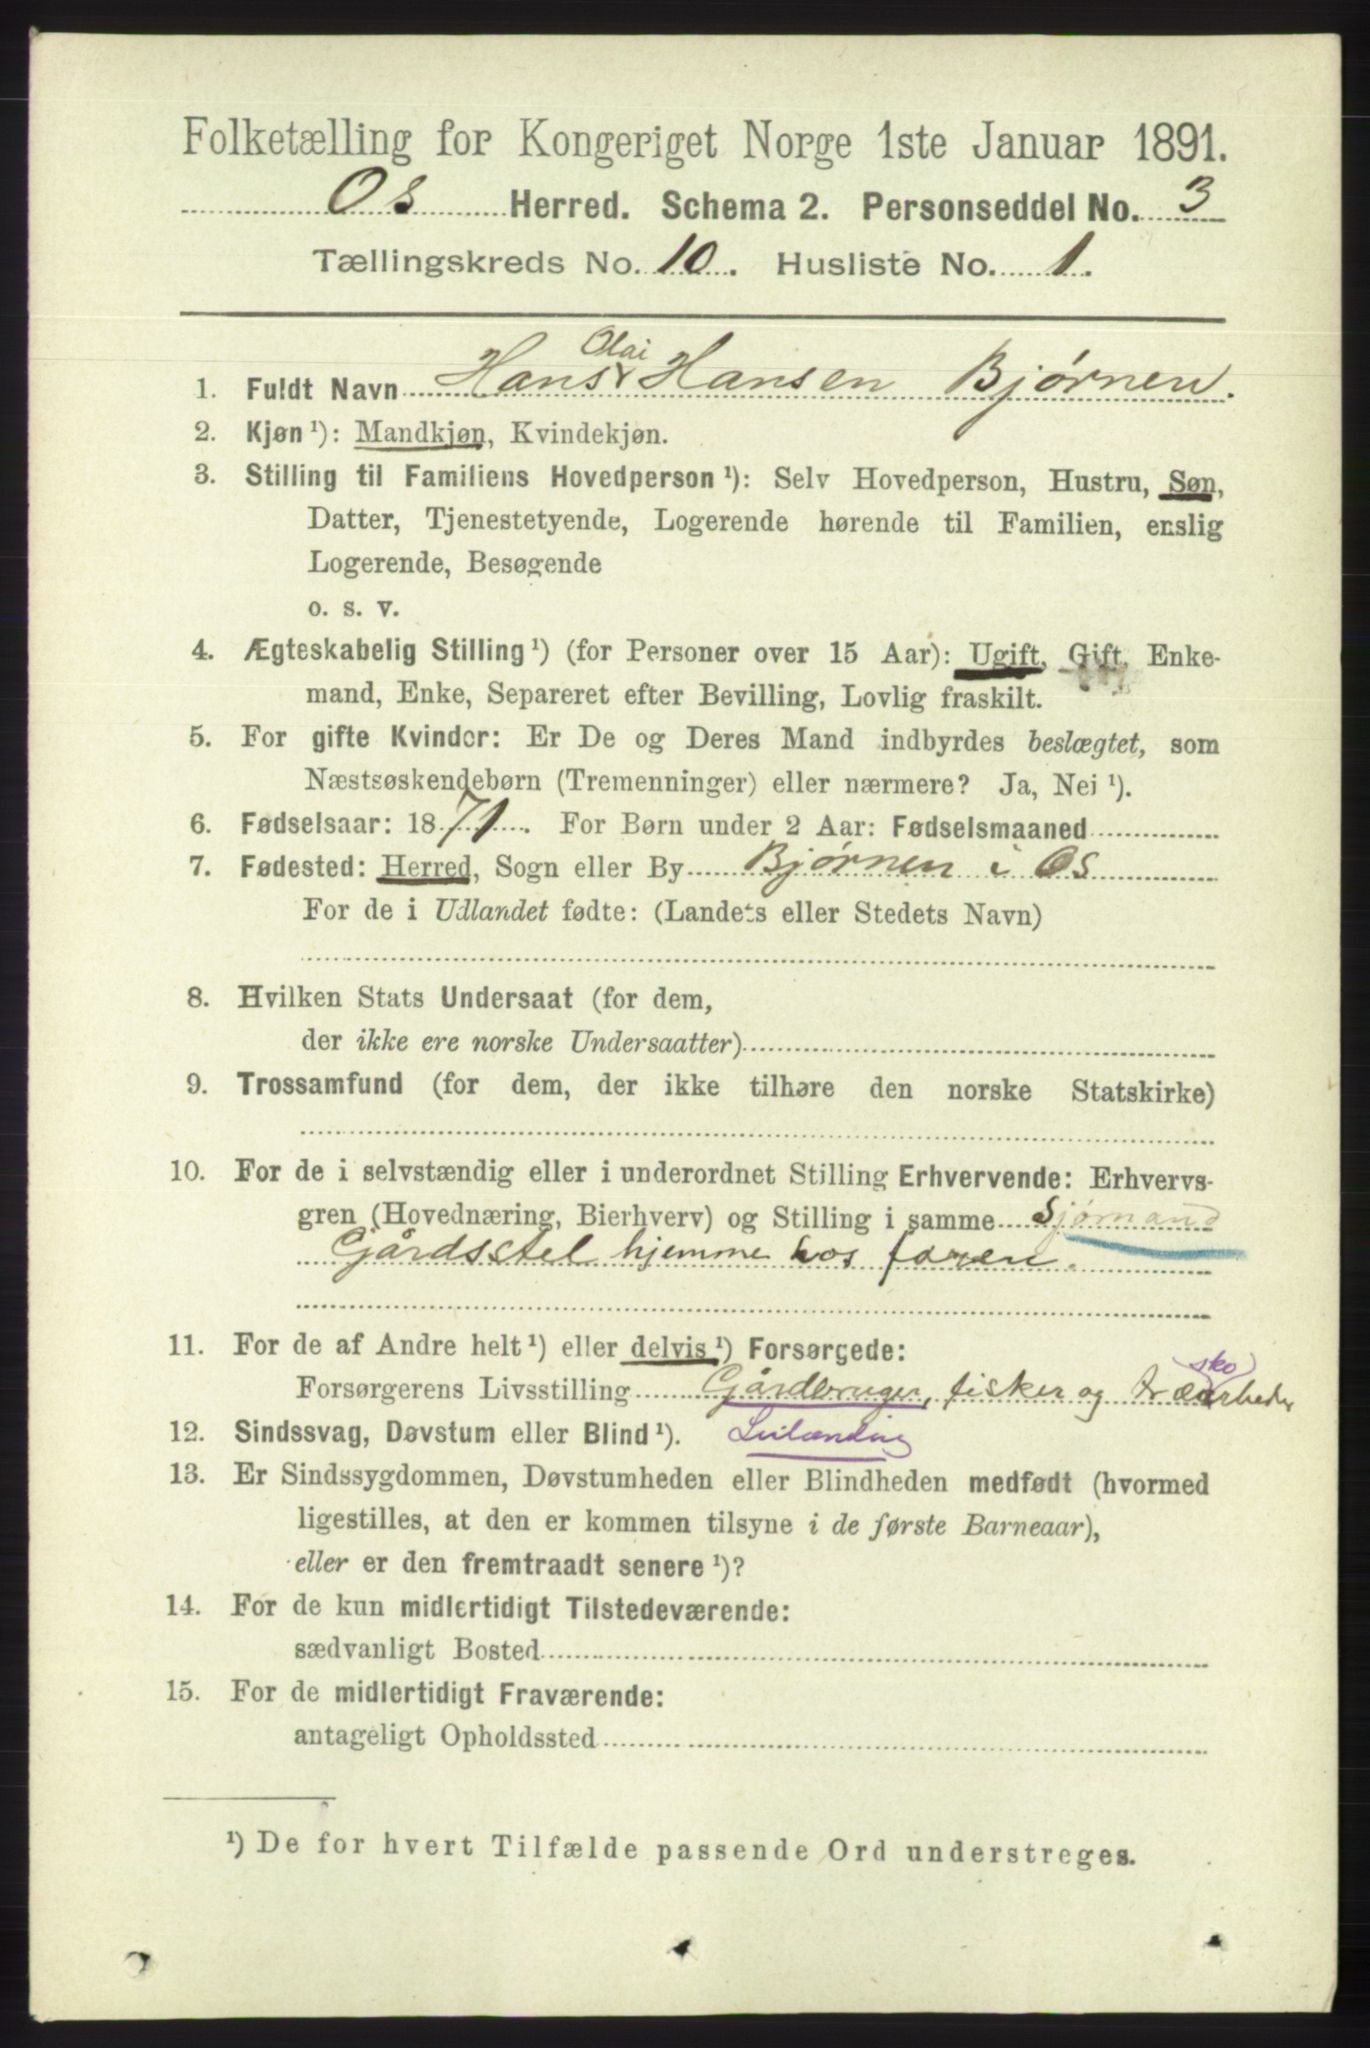 Folketælling for Kongeriget Norge 1ste Januar 1891.
Os Herred. Schema 2. Personseddel No. 3
Tællingskreds No. 10. Husliste No. 1.
Olai
1. Fuldt Navn Hans Hansen Bjørnen.
2. Kjøn ¹): Mandkjøn, Kvindekjøn.
3. Stilling til Familiens Hovedperson ¹): Selv Hovedperson, Hustru, Søn,
Datter, Tjenestetyende, Logerende hørende til Familien, enslig
Logerende, Besøgende
o. s. v.
4. Ægteskabelig Stilling ¹) (for Personer over 15 Aar): Ugift, Gift, Enke-
mand, Enke, Separeret efter Bevilling, Lovlig fraskilt.
5. For gifte Kvinder: Er De og Deres Mand indbyrdes beslægtet, som
Næstsøskendebørn (Tremenninger) eller nærmere? Ja, Nei ¹).
6. Fødselsaar: 1871. For Børn under 2 Aar: Fødselsmaaned
7. Fødested: Herred, Sogn eller By Bjørnen i Os
For de i Udlandet fødte: (Landets eller Stedets Navn)
8. Hvilken Stats Undersaat (for dem,
der ikke ere norske Undersaatter)
9. Trossamfund (for dem, der ikke tilhøre den norske Statskirke)
10. For de i selvstændig eller i underordnet Stilling Erhvervende: Erhvervs-
gren (Hovednæring, Bierhverv) og Stilling i samme Sjømand
Gårdsstel hjemme hos faren.
11. For de af Andre helt ¹) eller delvis ¹) Forsørgede:
sko
Forsørgerens Livsstilling Gårdbruger, fisker og træarbeder
12. Sindssvag, Døvstum eller Blind ¹). Leilænding
13. Er Sindssygdommen, Døvstumheden eller Blindheden medfødt (hvormed
ligestilles, at den er kommen tilsyne i de første Barneaar),
eller er den fremtraadt senere ¹)?
14. For de kun midlertidigt Tilstedeværende:
sædvanligt Bosted
15. For de midlertidigt Fraværende:
antageligt Opholdssted
¹) De for hvert Tilfælde passende Ord understreges.